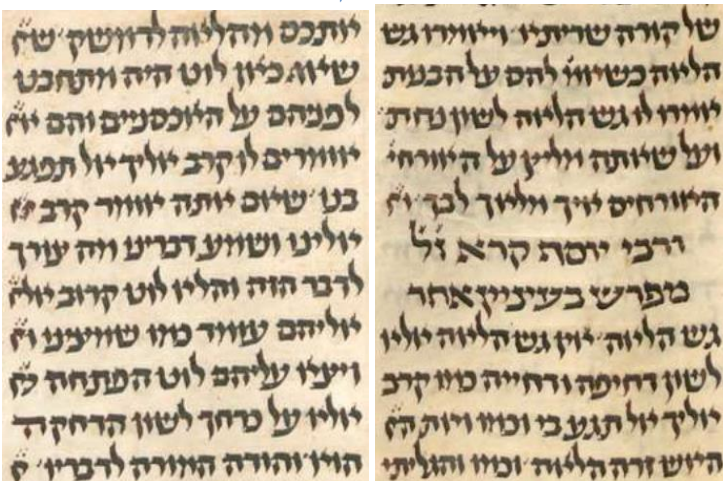 של קורה שריתיו ויאמרו גש
הלאה כשאמ' להם על הבנות
אמרו לו גש הלאה לשון נחת
ועל שאתה מליץ על האורחי'
האורחים איך מלאך לבך
ורבי יוסף קרא ז'ל
מפרש בעיניין אחר
גש הלאה אין גש הלאה אלא
לשון דחיפה ודחייה כמו קרב
אליך אל תגע בי וכמו ואת
האש זרה הלאה וכמו והגליתי
אתכם מהלאה לדמשק
שאם כאן לוט היה מתחבט
לפניהם על האכסניים והם
אומרים לו קרב אליך אל תפגע
בנו שאם אתה אומר קרב
אלינו ושמע דברינו מה עורך
לדבר הזה והלא לוט קרוב
אליהם עומד כמו שמצינו
ויצא עליהם לוט הפתחה
אלא על כרחך לשון הרחקה
הוא והודה המורה לדבריו